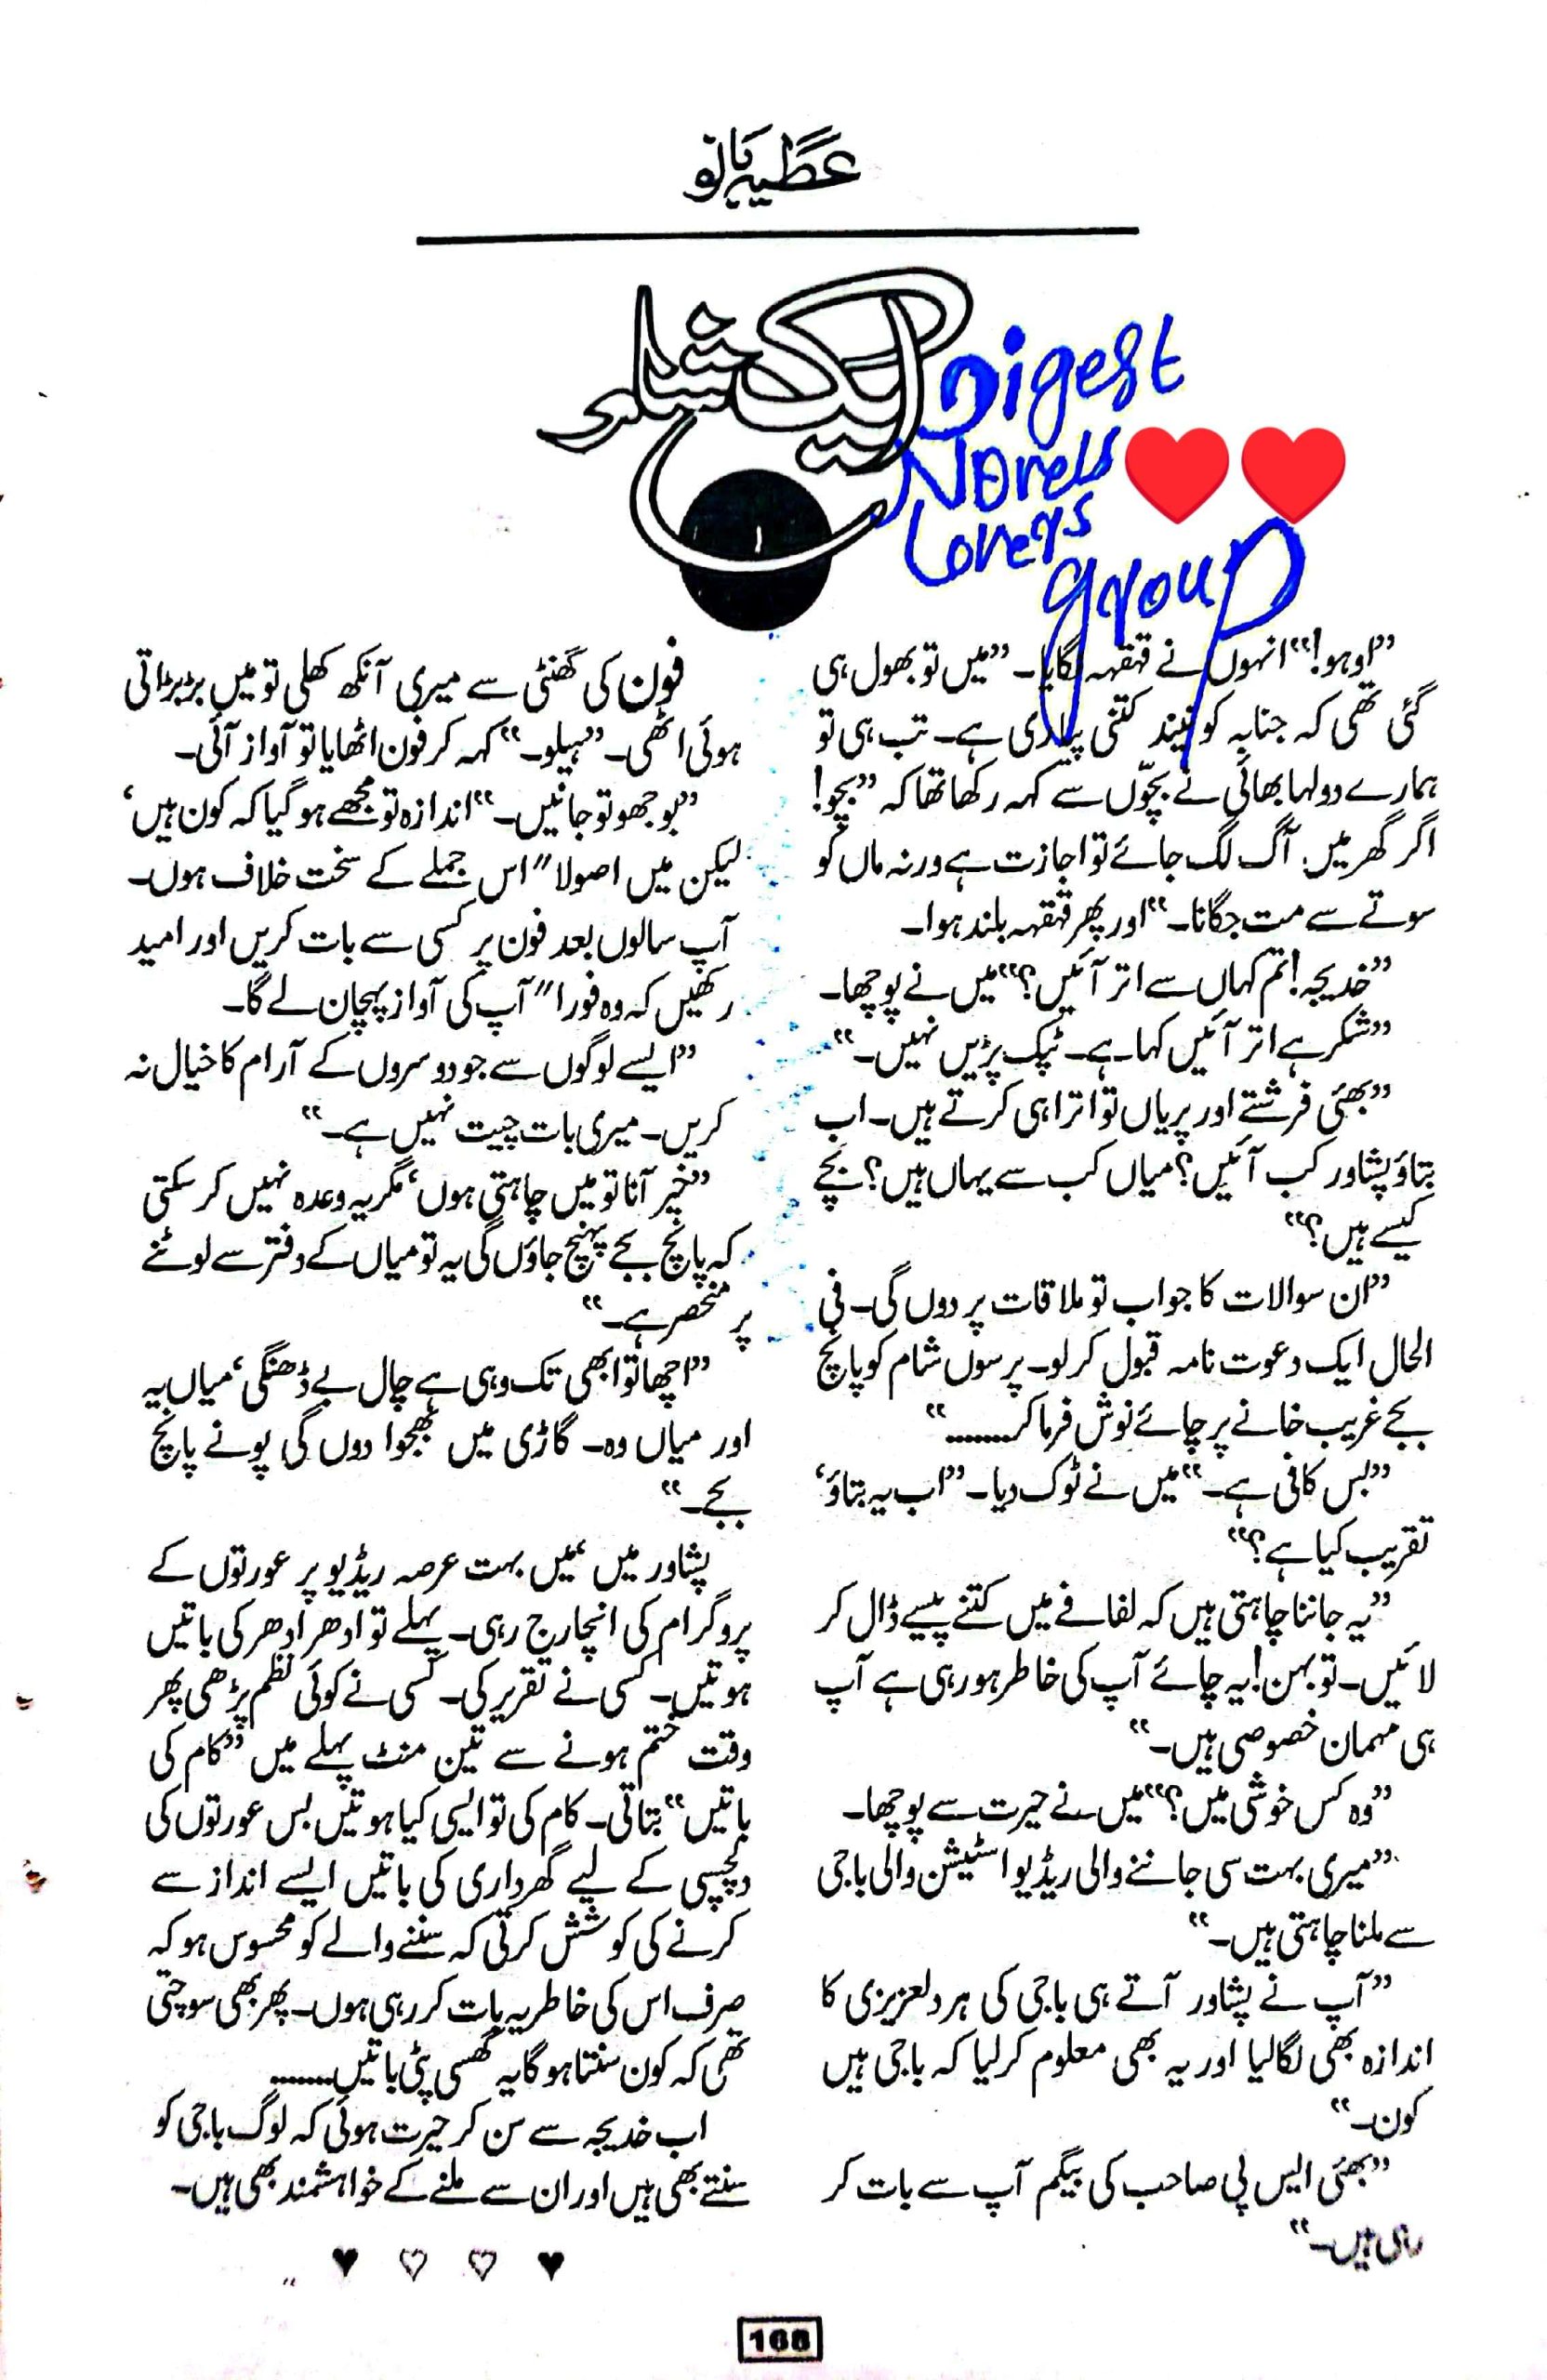 عطیہ بانو
ایک
Digest
Novels ❤️❤️
Lovers
group
”اوہو!“ انہوں نے قہقہہ لگایا۔ ”میں تو بھول ہی
گئی تھی کہ جنابہ کو نیند کتنی پیاری ہے۔ تب ہی تو
ہمارے دولہا بھائی نے بچّوں سے کہہ رکھا تھا کہ ”بچو!
اگر گھر میں آگ لگ جائے تو اجازت ہے ورنہ ماں کو
سوتے سے مت جگانا۔“ اور پھر قہقہہ بلند ہوا۔
”خدیجہ! تم کہاں سے اتر آئیں؟“ میں نے پوچھا۔
”شکر ہے اتر آئیں کہا ہے۔ ٹپک پڑیں نہیں۔“
”بھئی فرشتے اور پریاں تو اترا ہی کرتے ہیں۔ اب
بتاؤ پشاور کب آئیں؟ میاں کب سے یہاں ہیں؟ بچے
کیسے ہیں؟“
”ان سوالات کا جواب تو ملاقات پر دوں گی۔ فی
الحال ایک دعوت نامہ قبول کرلو۔ پرسوں شام کو پانچ
بجے غریب خانے پر چائے نوش فرما کر........“
”بس کافی ہے۔“ میں نے ٹوک دیا۔ ”اب یہ بتاؤ،
تقریب کیا ہے؟“
”یہ جاننا چاہتی ہیں کہ لفافے میں کتنے پیسے ڈال کر
لائیں۔ تو بہن! یہ چائے آپ کی خاطر ہو رہی ہے آپ
ہی مہمان خصوصی ہیں۔“
”وہ کس خوشی میں؟“ میں نے حیرت سے پوچھا۔
”میری بہت سی جاننے والی ریڈیو اسٹیشن والی باجی
سے ملنا چاہتی ہیں۔“
”آپ نے پشاور آتے ہی باجی کی ہردلعزیزی کا
اندازہ بھی لگالیا اور یہ بھی معلوم کرلیا کہ باجی ہیں
کون۔“
”بھئی ایس پی صاحب کی بیگم آپ سے بات کر
رہی ہیں۔“
فون کی گھنٹی سے میری آنکھ کھلی تو میں بڑبڑاتی
ہوئی اٹھی۔ ”ہیلو۔“ کہہ کر فون اٹھایا تو آواز آئی۔
”بوجھو تو جانیں۔“ اندازہ تو مجھے ہو گیا کہ کون ہیں،
لیکن میں اصولا" اس جملے کے سخت خلاف ہوں۔
آپ سالوں بعد فون پر کسی سے بات کریں اور امید
رکھیں کہ وہ فورا" آپ کی آواز پہچان لے گا۔
”ایسے لوگوں سے جو دوسروں کے آرام کا خیال نہ
کریں۔ میری بات چیت نہیں ہے۔“
”خیر آنا تو میں چاہتی ہوں، مگر یہ وعدہ نہیں کر سکتی
کہ پانچ بجے پہنچ جاؤں گی یہ تو میاں کے دفتر سے لوٹنے
پر منحصر ہے۔“
”اچھا تو ابھی تک وہی ہے چال بے ڈھنگی، میاں یہ
اور میاں وہ۔ گاڑی میں بھجوا دوں گی پونے پانچ
بجے۔“
پشاور میں، میں بہت عرصہ ریڈیو پر عورتوں کے
پروگرام کی انچارج رہی۔ پہلے تو ادھر ادھر کی باتیں
ہوتیں۔ کسی نے تقریر کی۔ کسی نے کوئی نظم پڑھی پھر
وقت ختم ہونے سے تین منٹ پہلے میں ”کام کی
باتیں“ بتاتی۔ کام کی تو ایسی کیا ہوتیں بس عورتوں کی
دلچسپی کے لیے گھرداری کی باتیں ایسے انداز سے
کرنے کی کوشش کرتی کہ سننے والے کو محسوس ہو کہ
صرف اس کی خاطر یہ بات کر رہی ہوں۔ پھر بھی سوچتی
تھی کہ کون سنتا ہوگا یہ گھسی پٹی باتیں........
اب خدیجہ سے سن کر حیرت ہوئی کہ لوگ باجی کو
سنتے بھی ہیں اور ان سے ملنے کے خواہشمند بھی ہیں۔
♥ ♡ ♡ ♥
168